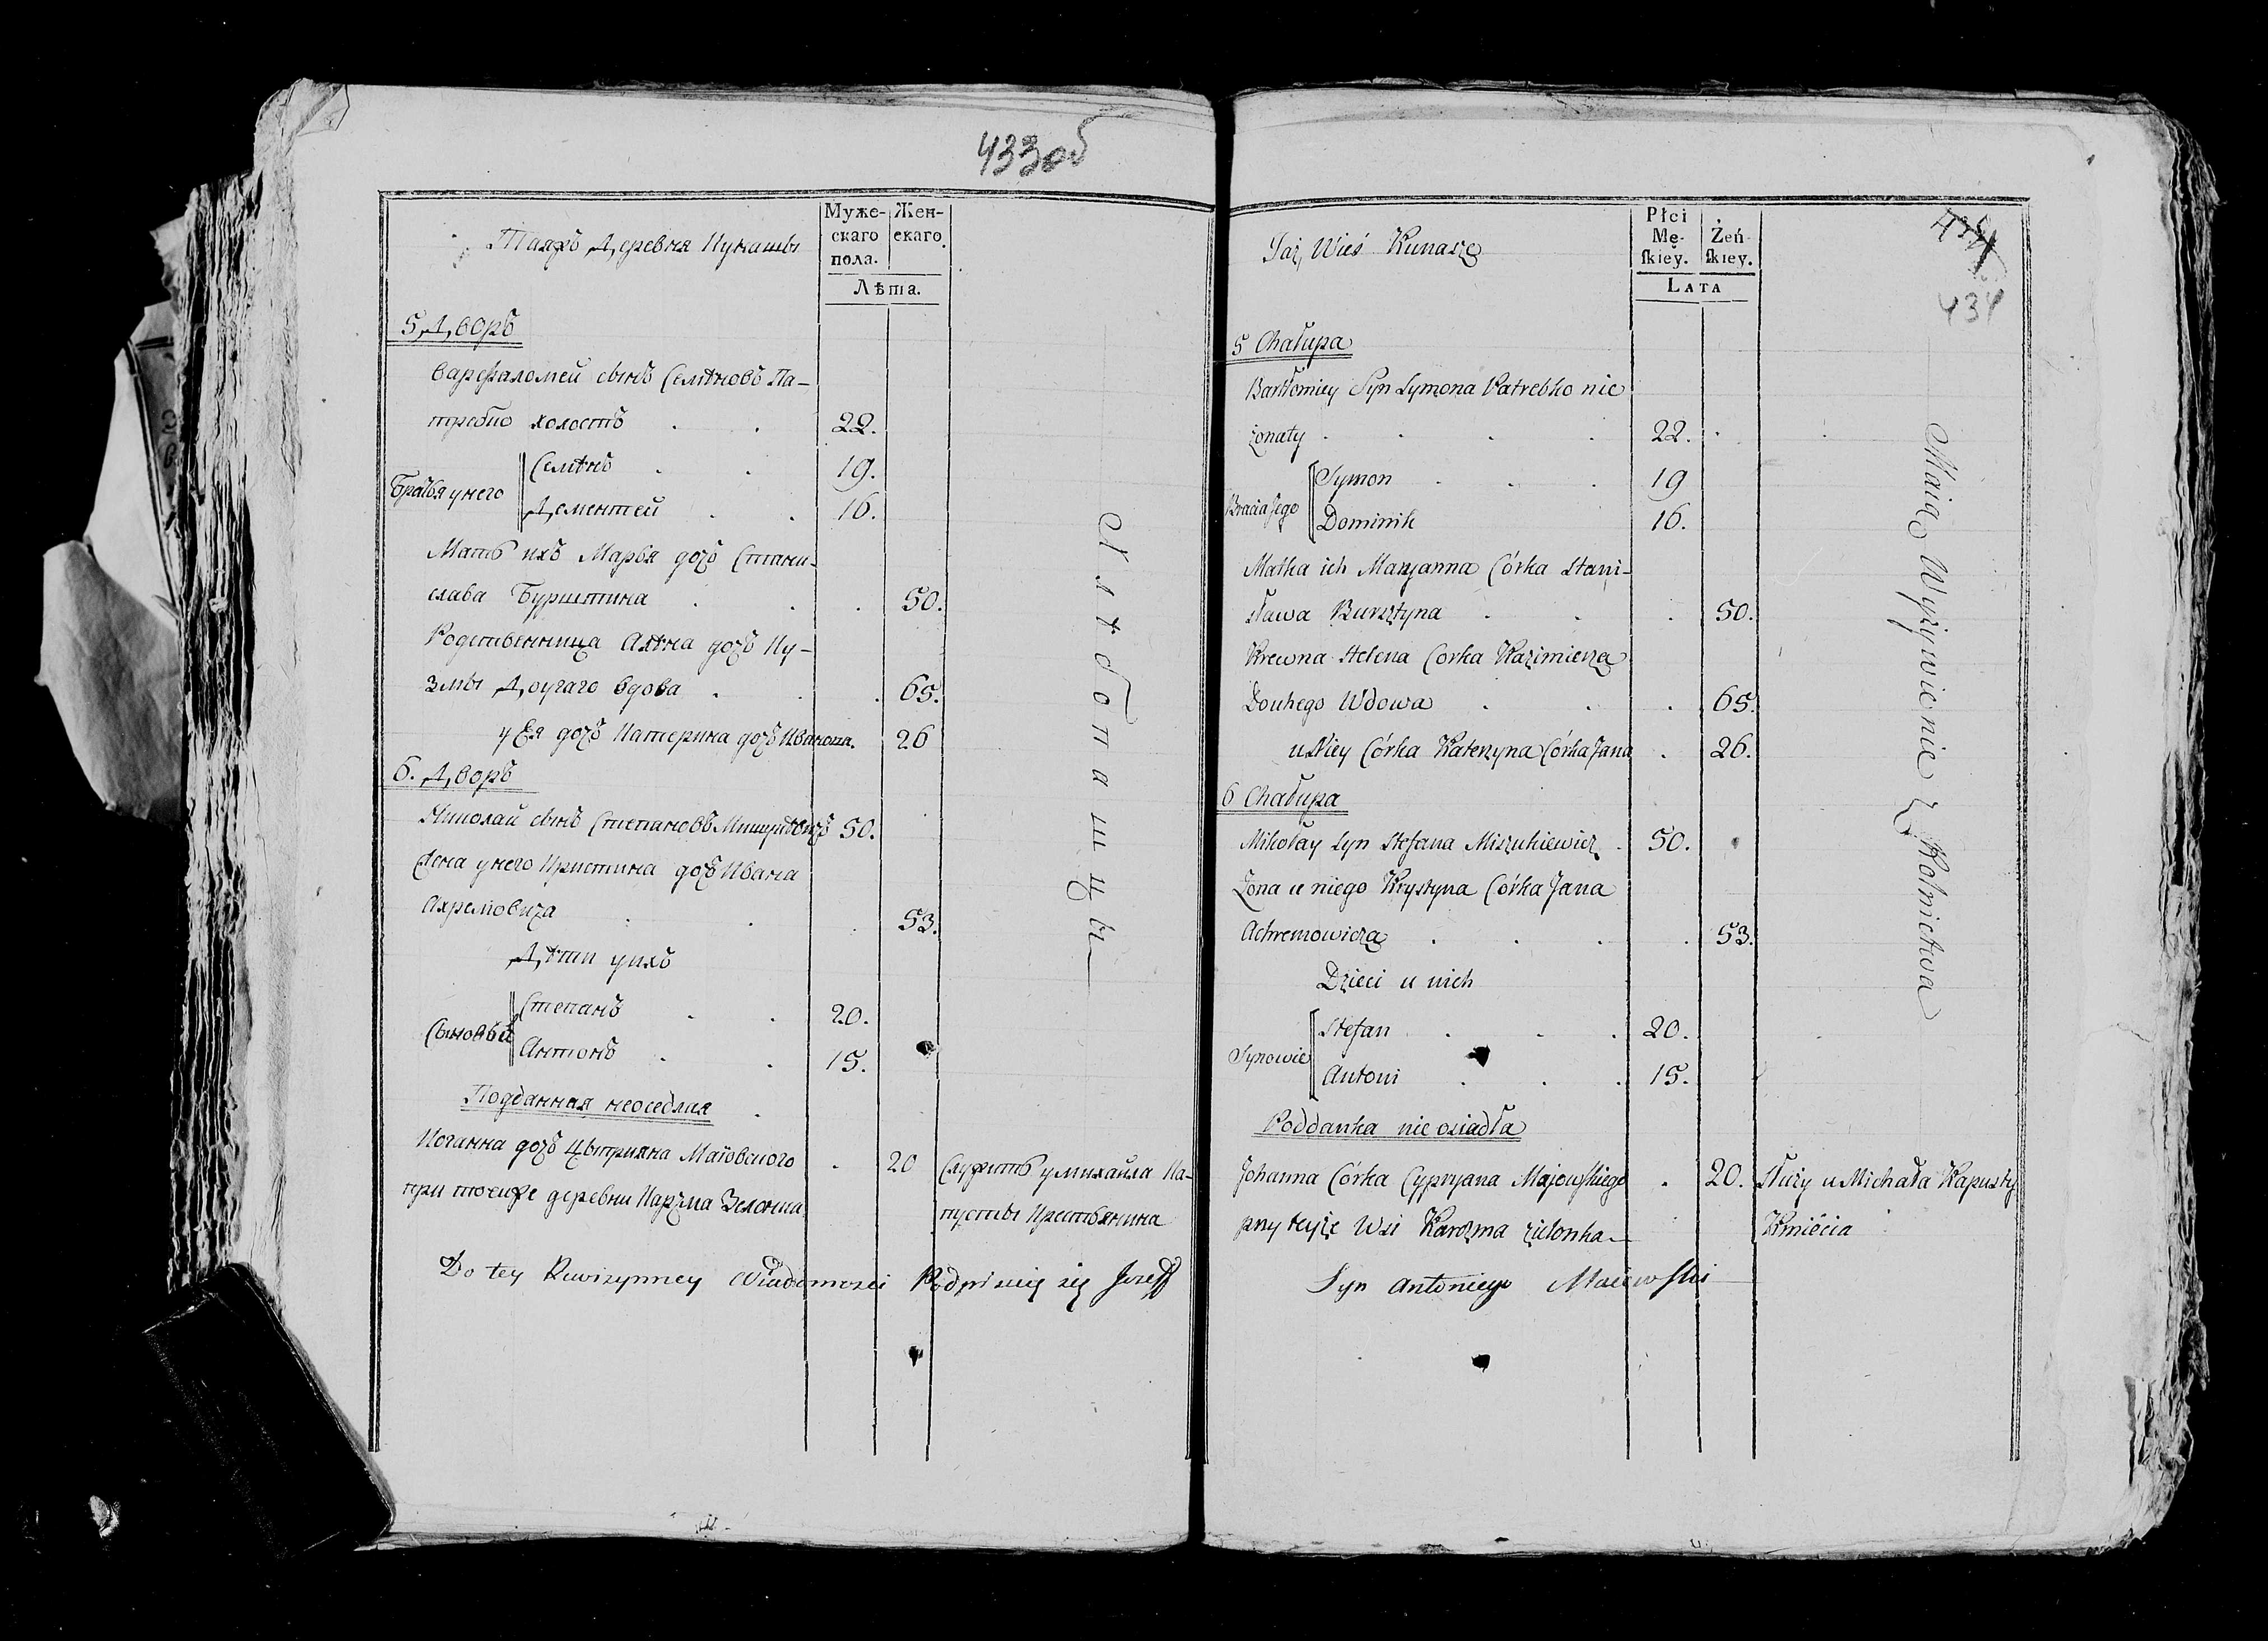 433об
Таяжъ Деревня Кунаши
Муже-
скаго
пола.
Жен-
скаго.
Лѣта.
5 Дворъ
Варфаломей сынъ Семѣновъ Па-
требко холостъ . . 22.
Братья у него
Семѣнъ . . 19.
Дементей . . 16.
Мать ихъ Марья дочь Стани-
слава Бурштина . . . 50.
Родственница Алѣна дочь Ку-
змы Доугаго вдова . . . 65.
у Ея дочь Катерина дочь Ивана. 26
6. Дворъ
Николай сынъ Степановъ 50.
Жена у него Кристина дочь Ивана
Ахремовича . . . 53.
Дѣти у ихъ
Сыновьи
Степанъ . . 20.
Антонъ . . 15.
Подданная неоседлая .
Іоганна дочь Цыприяна Маіовского . 20 Служитъ у михайла Ка-
при точиже деревни Карчма Зелонка пусты Крестьянина
Хлѣбопашцы
Do tey Rewizynney Wiadomosci Podpisuię się Jozeff
434
Taż Wieś Kunasze
Płci
Mę-
skiey.
Żeń
skiey.
LATA
5 Chałupa
Bartłomiey Syn Symona Patrebko nie
żonaty . . . . 22. .
Bracia Jego
Symon . . . 19
Dominik 16.
Matka ich Maryanna Córka Stani-
sława Bursztyna . . . 50.
Krewna Helena Corka Kazimierza
Douhego Wdowa . . . 65.
u Niey Córka Katerzyna Córka Jana . 26.
6 Chałupa
Mikołay Syn Stefana Miszukiewicz . 50.
Żona u niego Krystyna Córka Jana
Achremowicza . . . . 53.
Dzieci u nich
Synowie
Stefan . . . 20.
Antoni . . . 15.
Poddanka nie osiadła
Johanna Córka Cypryana Majowskiego . 20. Służy u Michała Kapusty
przy teyże Wsi Karczma zielonka Kmiécia
Maią Wyżywienie z Rolnictwa
Syn Antoniego Maiewski